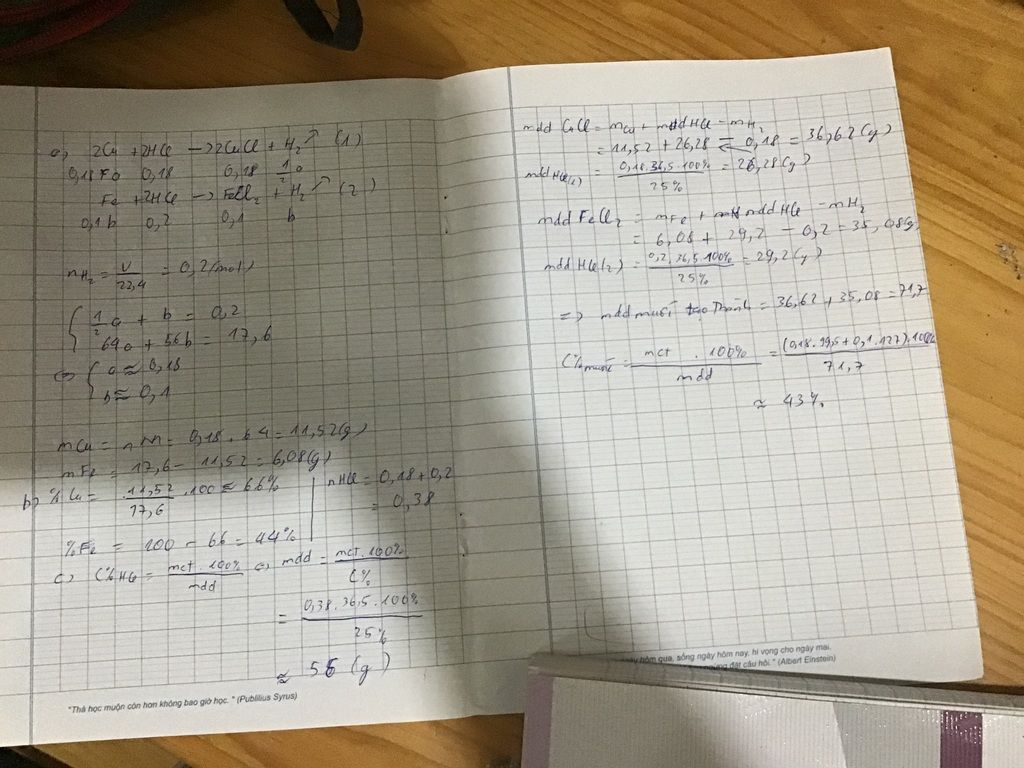 a, 2Cu + 2HCl → 2CuCl + H₂↗ (1)
0,18 Fa 0,18 0,18 1/2 a
Fe + 2HCl → FeCl₂ + H₂↗ (2)
0,1 b 0,2 0,1 b
nH₂ = V/22,4 = 0,2 (mol)
{ 1/2 a + b = 0,2
64a + 56b = 17,6
(=) { a ≈ 0,18
b ≈ 0,1
mCu = n.M = 0,18 . 64 = 11,52 (g)
mFe = 17,6 - 11,52 = 6,08 (g)
b) % Cu = 11,52/17,6 .100 ≈ 66%
%Fe = 100 - 66 = 44%
nHCl = 0,18 + 0,2
= 0,38
c) C% HCl = mct . 100%/mdd (=) mdd = mct . 100%/C%
= 0,38 . 36,5 . 100%/25%
≈ 56 (g)
"Thà học muộn còn hơn không bao giờ học. " (Publilius Syrus)
mdd CuCl = mCu + mddHCl - mH₂
= 11,52 + 26,28 - 0,18 = 36,62 (g)
mddHCl(1) = 0,18 . 36,5 . 100%/25% = 26,28 (g)
mdd FeCl₂ = mFe + mddHCl - mH₂
= 6,08 + 29,2 - 0,2 = 35,08 (g)
mdd HCl(2) = 0,2 . 36,5 . 100%/25% = 29,2 (g)
=> mdd muối tạo thành = 36,62 + 35,08 = 71,7
C% muối = mct . 100%/mdd = (0,18 . 99,5 + 0,1 . 127) . 100%/71,7
≈ 43%
hôm qua, sống ngày hôm nay, hi vọng cho ngày mai.
đặt câu hỏi. " (Albert Einstein)